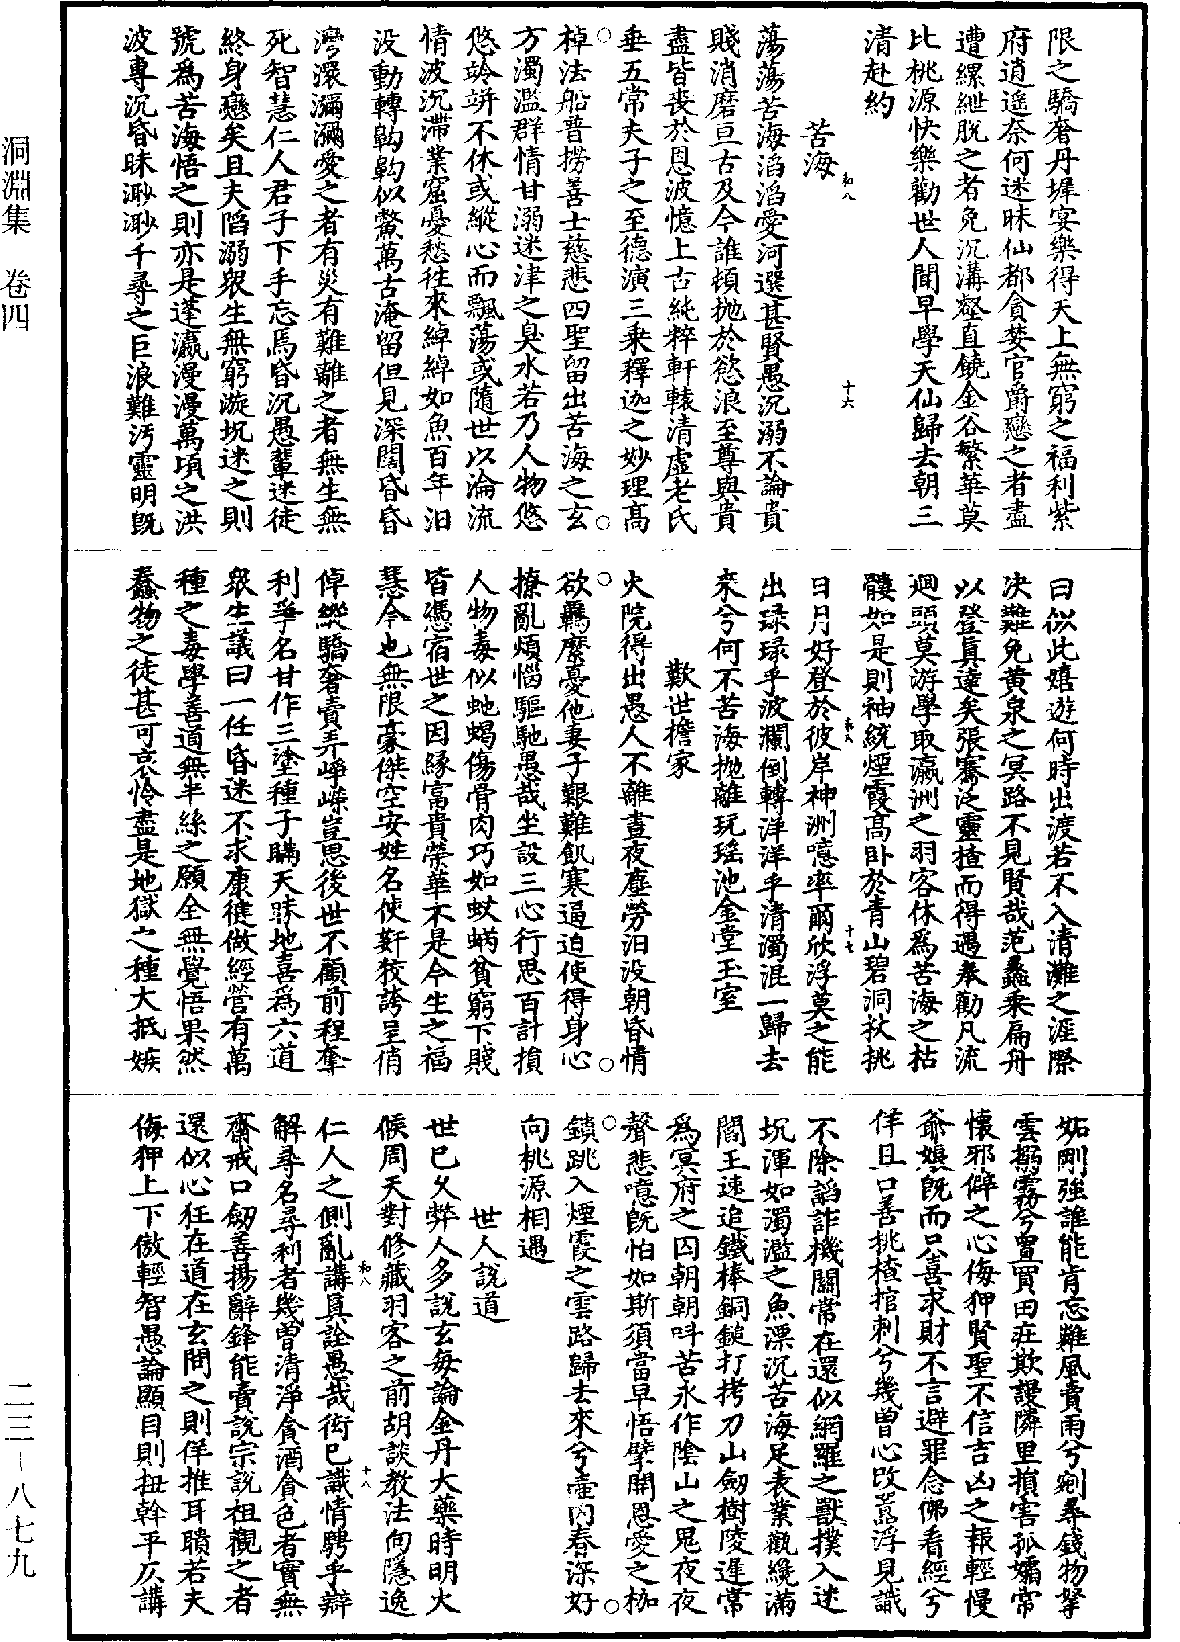 限之驕奢丹墀宴樂得天上無窮之福利紫
府逍遥奈何迷昧仙都貪婪官爵戀之者盡
遭縲紲脫之者免沉溝壑直饒金谷繁華莫
比桃源快樂勸世人聞早學天仙歸去朝三
清赴約
苦海
蕩蕩苦海滔滔愛河選甚賢愚沉溺不論貴
賤消磨亘古及今誰頓抛於慾浪至尊與貴
盡皆喪於恩波憶上古純粹軒轅清虛老氏
垂五常夫子之至德演三乘釋迦之妙理高
棹法船普撈善士慈悲四聖留出苦海之玄
方濁濫群情甘溺迷津之臭水若乃人物悠
悠竛竮不休或縱心而飄蕩或隨世以淪流
情波沉滯業窟憂愁往來綽綽如魚百年汩
没動轉齁齁似鱉萬古淹留但見深闊昏昏
灣澴瀰瀰愛之者有災有難離之者無生無
死智慧仁人君子下手忘焉昏沉愚輩迷徒
終身戀矣且夫陷溺衆生無窮漩坑迷之則
號爲苦海悟之則亦是蓬瀛漫漫萬頃之洪
波專沉昏昧渺渺千尋之巨浪難汚靈明旣
曰似此嬉遊何時出渡若不入清灘之涯際
决難免黄泉之冥路不見賢哉范蠡乘扁舟
以登真達矣張騫泛靈槎而得遇奉勸凡流
迴頭莫游學取瀛洲之羽客休爲苦海之枯
髏如是則袖統煙霞高卧於青山碧洞杖挑
日月好登於彼岸神洲噫率爾欣浮莫之能
出琭琭乎波瀾倒轉洋洋乎清濁混一歸去
來兮何不苦海抛離玩瑶池金堂玉室
歎世擔家
火院得出愚人不離晝夜塵勞汩没朝昏情
欲羈縻憂他妻子艱難飢寒逼迫使得身心
撩亂煩惱驅馳愚哉坐設三心行思百計損
人物毒似虵蝎傷骨肉巧如蚊蜹貧窮下賤
皆憑宿世之因緣富貴榮華不是今生之福
慧今也無限豪傑空安姓名使姧狡誇呈俏
倬縱驕奢賣弄崢嶸豈思後世不顧前程奪
利爭名甘作三塗種子瞞天昧地喜爲六道
衆生議曰一任昏迷不求康健做經營有萬
種之毒學善道無半絲之願全無覺悟果然
蠢物之徒甚可哀怜盡是地獄之種大抵嫉
妬剛強誰能肯忘難風賣雨兮剜尋錢物拏
雲搦霧兮置買田莊欺謾隣里損害孤孀常
懷邪僻之心侮狎賢聖不信吉凶之報輕慢
爺孃旣而只喜求財不言避罪念佛看經兮
佯且口善挑楂棺刺兮幾曾心改嵩浮見識
不除謟詐機關常在還似網羅之獸撲入迷
坑渾如濁濫之魚漂沉苦海足表業觀纔滿
閻王速追鐵棒銅鎚打拷刀山劒樹陵遲常
爲冥府之囚朝朝呌苦永作陰山之鬼夜夜
聲悲噫旣怕如斯須當早悟擘開恩愛之枷
鎖跳入煙霞之雲路歸去來兮壷内春深好
向桃源相遇
世人說道
世已乆弊人多說玄每論金丹大藥時明火
候周天對修藏羽客之前胡談教法向隱逸
仁人之側亂講真詮愚哉衒已識情騁乎辯
解尋名尋利者幾曾清淨貪酒貪色者實無
齋戒口劒善揚辭鋒能賣說宗說祖觀之者
還似心狂在道在玄問之則佯推耳聵若夫
侮狎上下傲輕智愚論顯目則扭幹平仄講
和八
十六
十七
和八
十八
洞淵集　卷四
二三－八七九